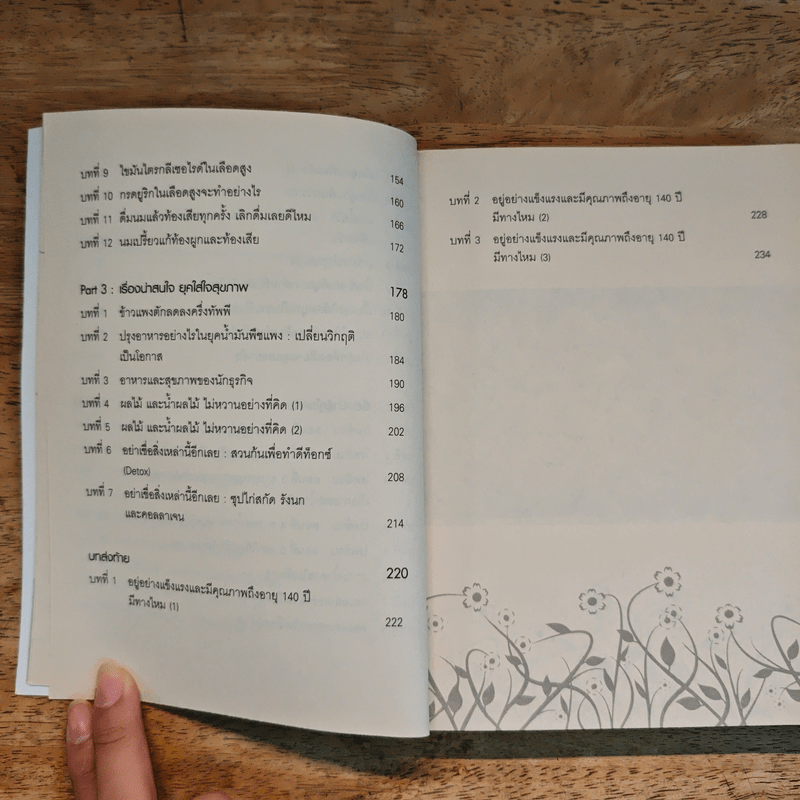 บทที่ 9 ไขมันไตรกลีเซอไรด์ในเลือดสูง 154
บทที่ 10 กรดยูริกในเลือดสูงจะทำอย่างไร 160
บทที่ 11 ดื่มนมแล้วท้องเสียทุกครั้ง เลิกดื่มเลยดีไหม 166
บทที่ 12 นมเปรี้ยวแก้ท้องผูกและท้องเสีย 172
Part 3 : เรื่องน่าสนใจ ยุคใส่ใจสุขภาพ 178
บทที่ 1 ข้าวแพงตักลดลงครึ่งทัพพี 180
บทที่ 2 ปรุงอาหารอย่างไรในยุคน้ำมันพืชแพง : เปลี่ยนวิกฤติ
เป็นโอกาส 184
บทที่ 3 อาหารและสุขภาพของนักธุรกิจ 190
บทที่ 4 ผลไม้ และน้ำผลไม้ ไม่หวานอย่างที่คิด (1) 196
บทที่ 5 ผลไม้ และน้ำผลไม้ ไม่หวานอย่างที่คิด (2) 202
บทที่ 6 อย่าเชื่อสิ่งเหล่านี้อีกเลย : สวนก้นเพื่อทำดีท็อกซ์
(Detox) 208
บทที่ 7 อย่าเชื่อสิ่งเหล่านี้อีกเลย : ซุปไก่สกัด รังนก
และคอลลาเจน 214
บทส่งท้าย 220
บทที่ 1 อยู่อย่างแข็งแรงและมีคุณภาพถึงอายุ 140 ปี
มีทางไหม (1) 222
บทที่ 2 อยู่อย่างแข็งแรงและมีคุณภาพถึงอายุ 140 ปี
มีทางไหม (2) 228
บทที่ 3 อยู่อย่างแข็งแรงและมีคุณภาพถึงอายุ 140 ปี
มีทางไหม (3) 234